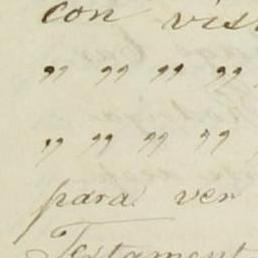 con vis
" " " "
" " " "
para ver
Testament